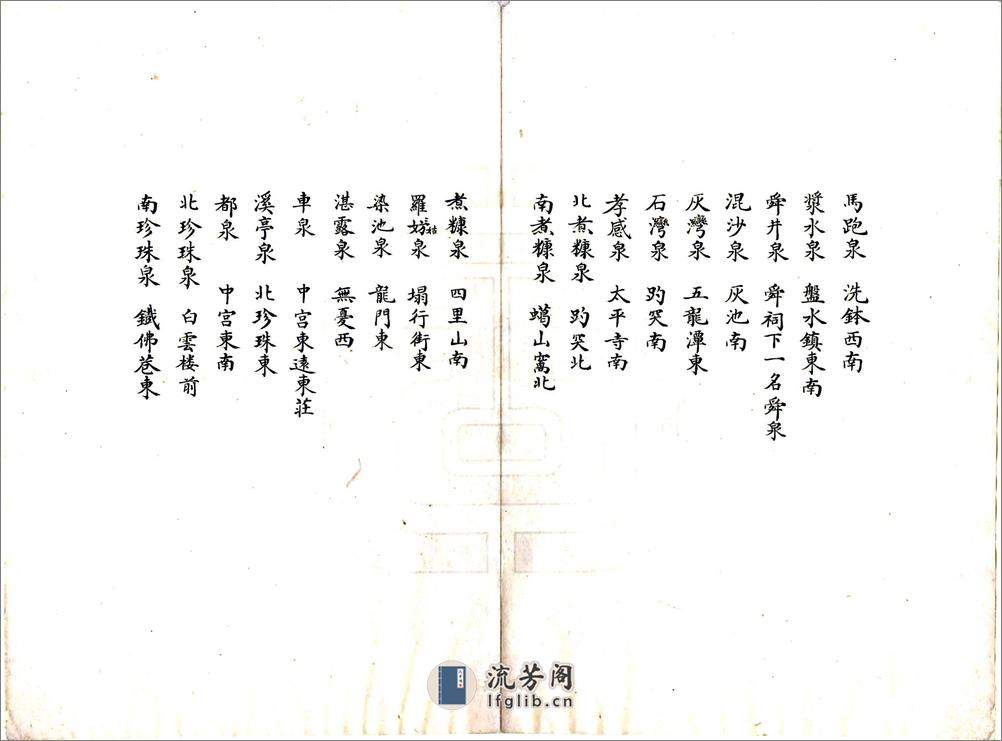 馬跑泉 洗鉢西南
漿水泉 盤水鎮東南
舜井泉 舜祠下一名舜泉
混沙泉 灰池南
灰灣泉 五龍潭東
石灣泉 趵突南
孝感泉 太平寺南
北煮糠泉 趵突北
南煮糠泉 蝎山窩北
煮糠泉 四里山南
羅泉 塌行街東
染池泉 龍門東
湛露泉 無憂西
車泉 中宮東遠東莊
溪亭泉 北珍珠東
都泉 中宮東南
北珍珠泉 白雲楼前
南珍珠泉 鐵佛巷東
流芳阁
lfglib.cn